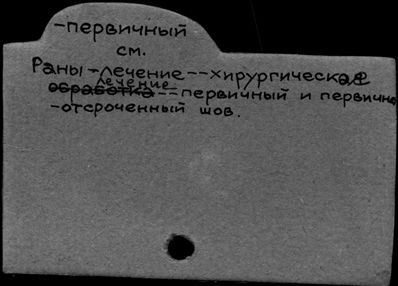 -первичный
см.
Раны-лечение--хирургическое
лечение
обработка--первичный и первично
-отсроченный шов.